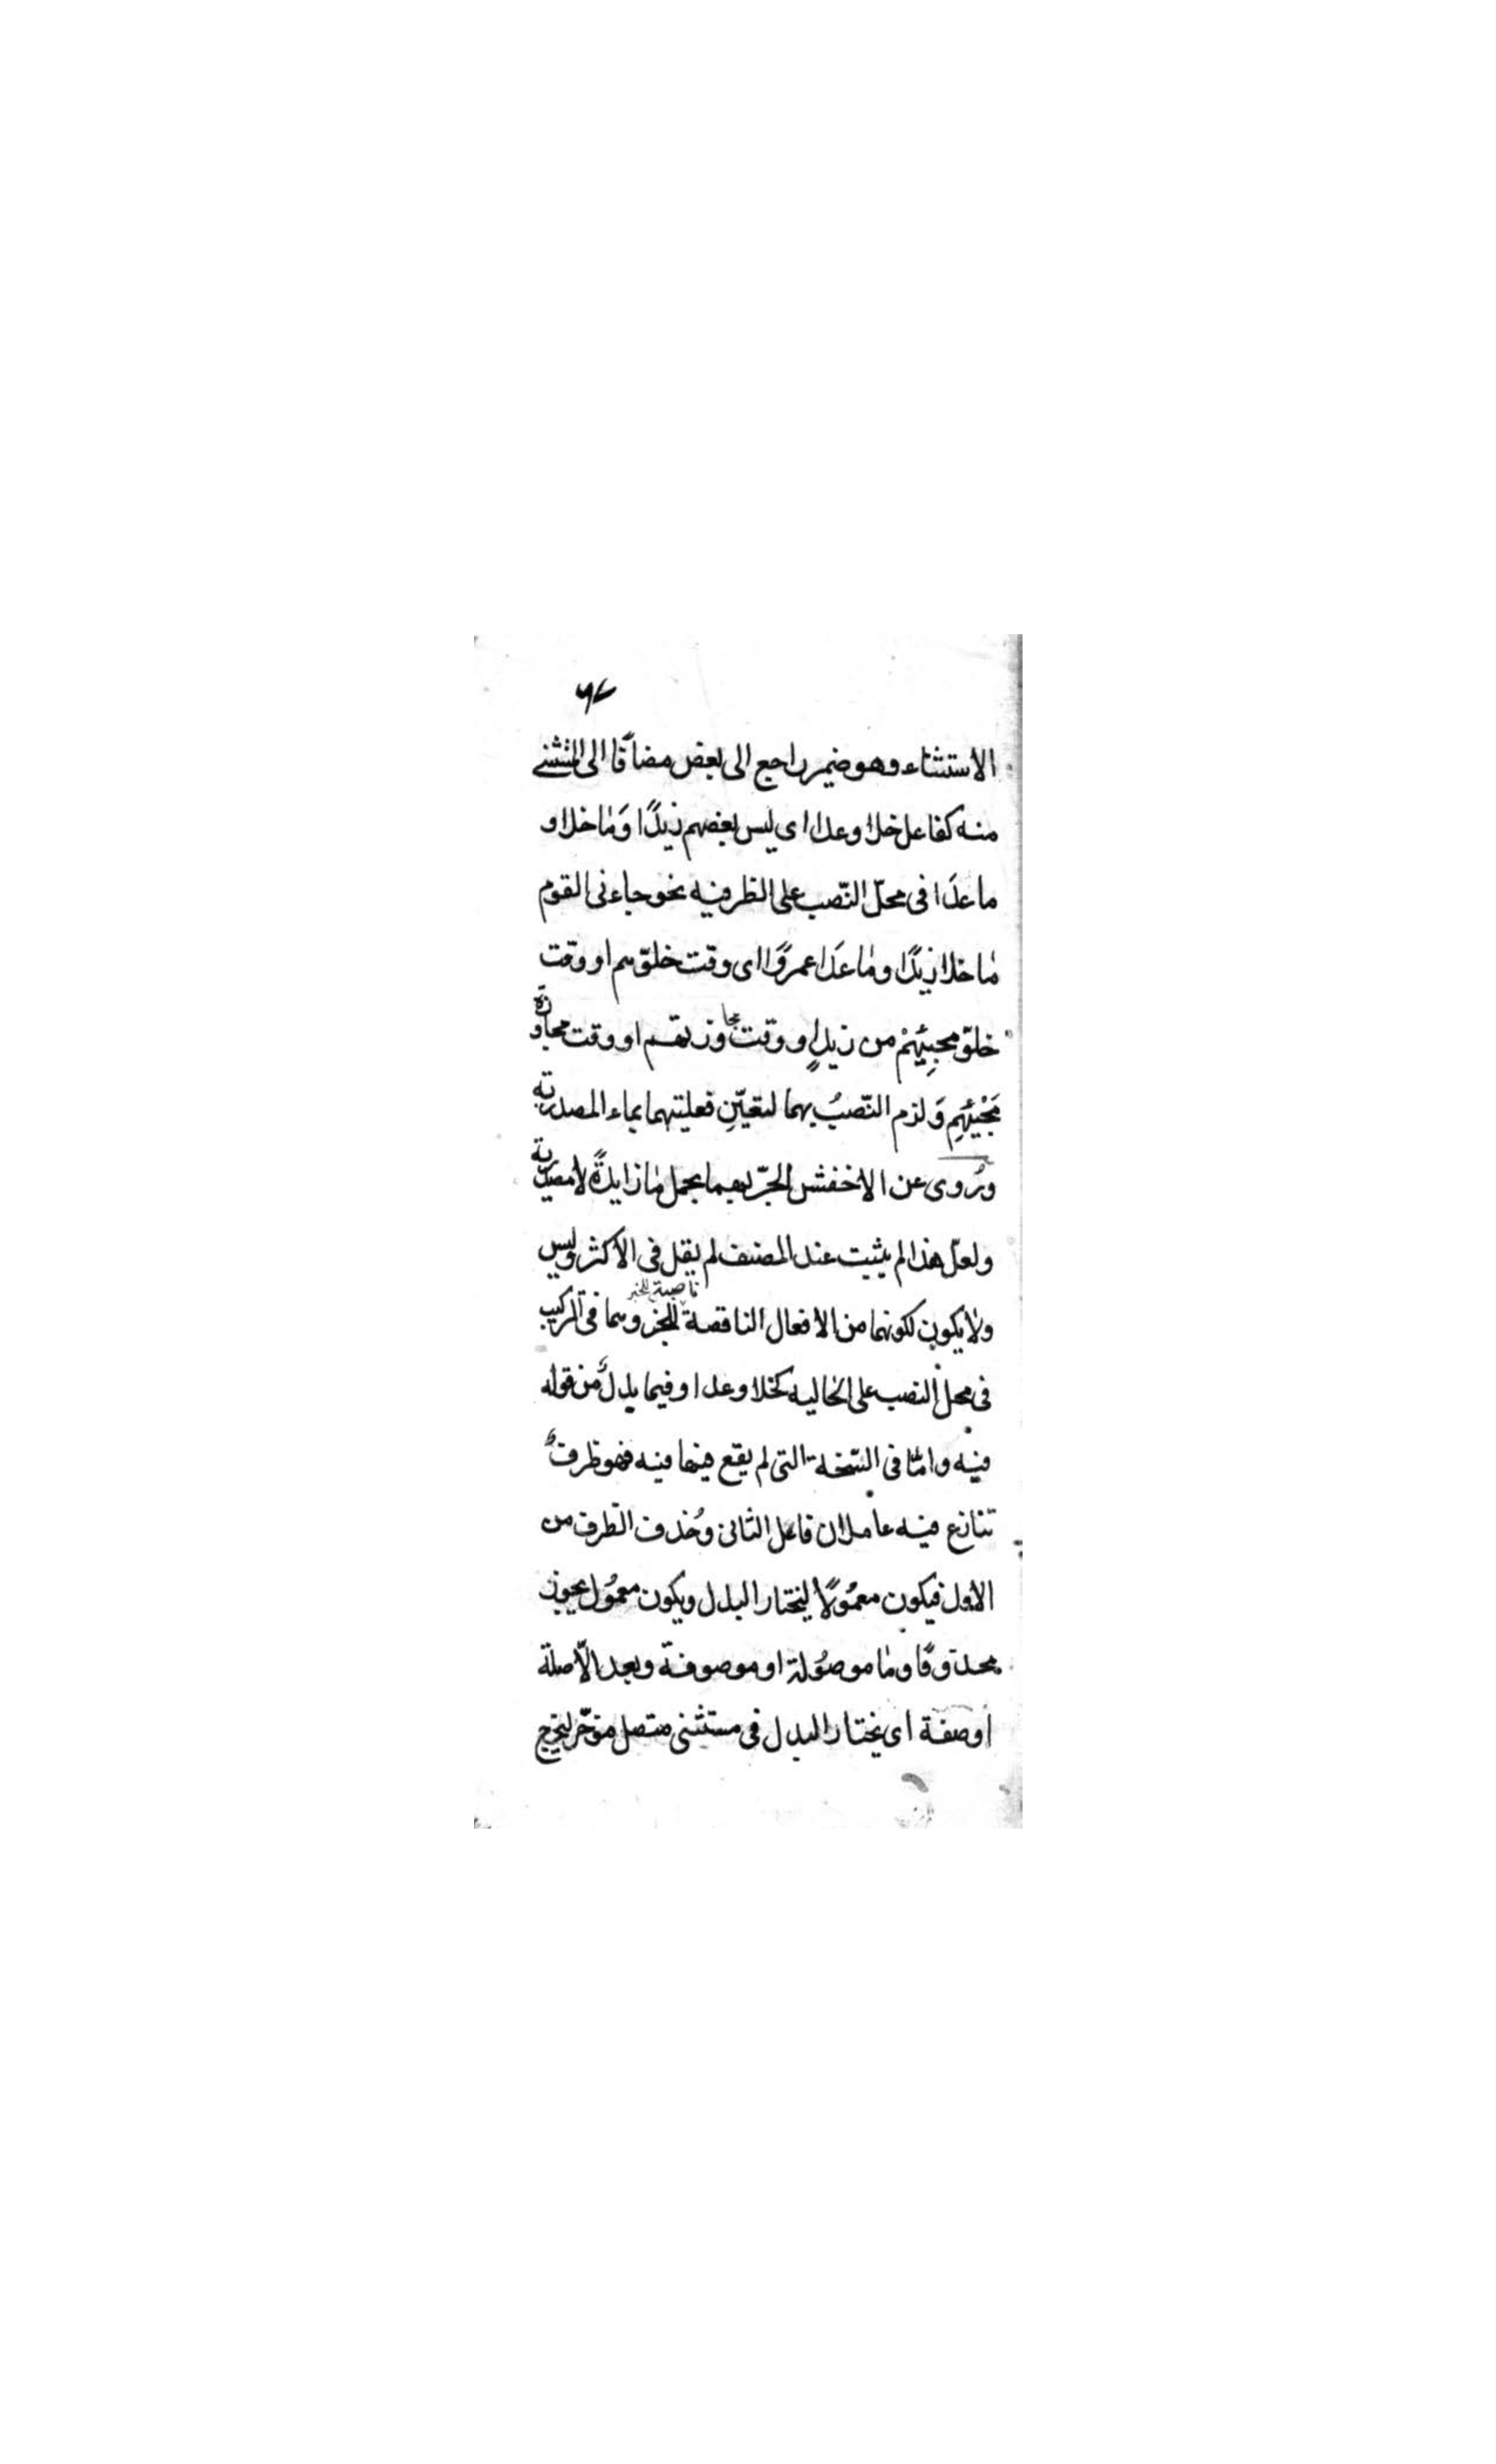 ٦٧
الاستثناء وهو ضمير راجع الى بعض مضافًا الى المستثنى
منه كفاعل خلا وعدا اى ليس بعضهم زيدًا وَمٰا خلا و
ما عدَا فى محلّ النّصب على الظرفيه نحو جاءنى القوم
مٰا خلا زيدًا ومٰا عَدا عمروًا اى وقت خلوّهم او وقت
خلوّ مجيئهِمْ من زيدٍ او وقت مجاوزتهم او وقت مجاوزة
مَجْيئهِم وَلزم النّصبُ بهما لتعيّنِ فعليتهما بماء المصدرية
ورُوى عن الاخفش الجرّ بهما بجعل مٰا زايدةً لا مصدرية
ولعلّ هذا لم يثبت عند المصنف لم يقل فى الاكثر وليس
ولا يكون لكونهما من الافعال الناقصة ناصبة للخبر للخبر وهما فى التركيب
فى محل النصب على الحاليه كخلا وعدا وفيما بدلٌ من قوله
فيه وامّا فى النّسخة التى لم يقع فيها فيه فهو ظرفٌ
تنازع فيه عاملان فاعل الثانى وحُذف الظّرف من
الاول فيكون معمُولًا ليختار البدل ويكون معمُول يجوز
محذوفًا ومٰا موصُولة او موصوفة وبعد الّا صلة
او صفة اى يختار البدل فى مستثنى متصل مؤخّر ليخرج